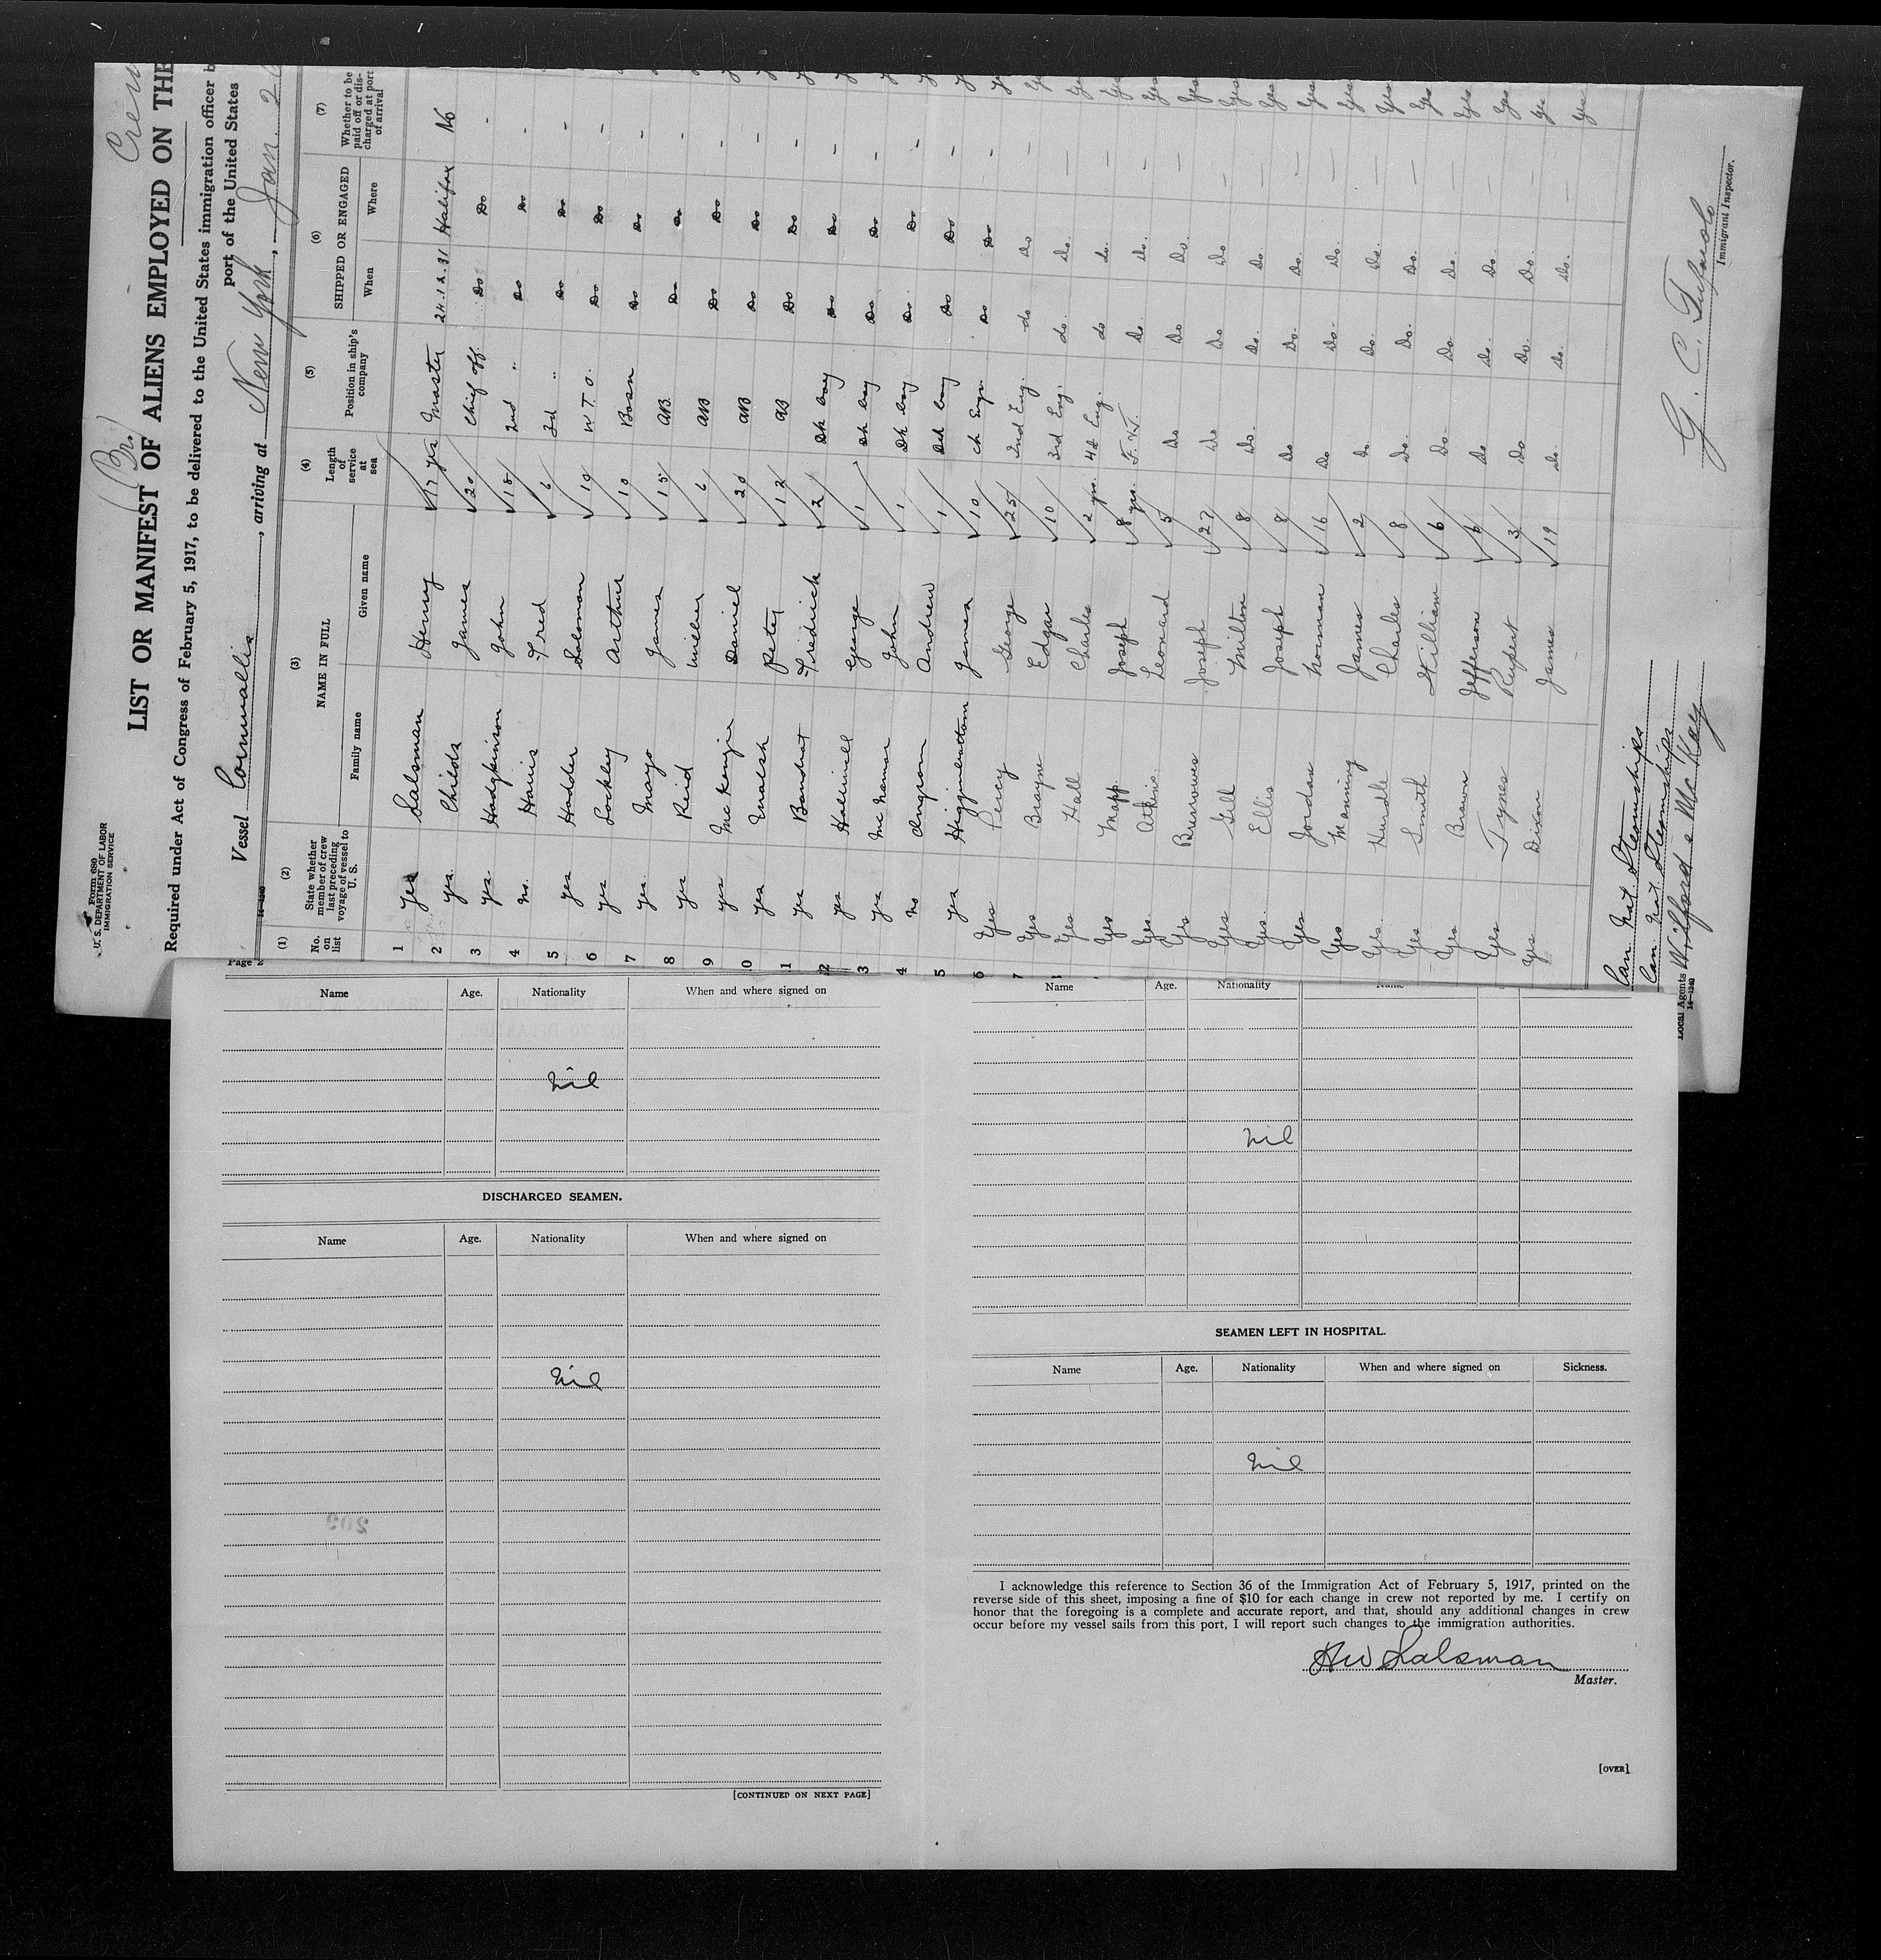 Form 680
U. S. DEPARTMENT OF LABOR
IMMIGRATION SERVICE
(Br.) Crew
LIST OR MANIFEST OF ALIENS EMPLOYED ON THE
Required under Act of Congress of February 5, 1917, to be delivered to the United States immigration officer b
port of the United States
Vessel Cornwallis, arriving at New York, Jan. 2
(1) (2) (3) (4) (5) (6) (7)
No. on list
State whether member of crew last preceding voyage of vessel to U. S.
NAME IN FULL
Family name Given name
Length of service at sea
Position in ship's company
SHIPPED OR ENGAGED
When Where
Whether to be paid off or discharged at port of arrival
1 yes Salsman Henry 17 yrs Master 24.12.31 Halifax No
2 yes Childs James 20 Chief off. Do Do -
3 yes Hodgkinson John 18 2nd " Do Do -
4 no. Harris Fred 6 3rd " Do Do -
5 yes Hodder Solomon 19 W.T.O. Do Do -
6 yes Lockley Arthur 10 Bosn Do Do -
7 yes Mayo James 15 AB. Do Do -
8 yes Reid 6 AB Do Do -
9 yes McKenzie Daniel 20 AB Do Do -
0 yes Walsh Peter 12 AB Do Do -
1 yes Fredrick 2 Dk boy Do Do -
2 yes Halliwell George 1 Dk boy Do Do -
3 yes McNamar John 1 Dk boy Do Do -
4 no Ingram Andrew 1 Dk boy Do Do -
5 yes Higginbottom James 10 Ch Engr Do Do -
6 Yes Percy George 25 2nd Eng. do do —
7 Yes Brayne Edgar 10 3rd Eng. do. Do. —
Yes Hall Charles 2 yrs. 4th Eng. do do. —
Yes Mapp Joseph 8 yrs. F.W. Do. Do. —
Yes Atkins. Leonard 5 Do Do Do. —
Yes Joseph 27 Do Do Do —
Yes Gill Milton 8 Do. Do. Do. —
Yes. Ellis Joseph 8 Do Do. Do. —
Yes Jordan Norman 16 Do Do. Do. —
Yes Manning James 2 Do. Do. Do. —
Yes. Hurdle Charles 8 Do. Do. Do. —
Yes Smith William 6 Do. Do. Do. —
Yes Brown Jefferson 6 Do Do. Do. —
Yes Tynes Rupert 3 Do Do. Do. —
Yes Dixon James 19 Do. Do. Do. —
Can Nat. Steamships
Can Nat Steamships
Local Agents Wilford & McKay
14—1240
Immigrant Inspector.
Page 2
Name Age. Nationality When and where signed on
Nil
DISCHARGED SEAMEN.
Name Age. Nationality When and where signed on
Nil
[CONTINUED ON NEXT PAGE]
Name Age. Nationality Name
Nil
SEAMEN LEFT IN HOSPITAL.
Name Age. Nationality When and where signed on Sickness.
Nil
I acknowledge this reference to Section 36 of the Immigration Act of February 5, 1917, printed on the
reverse side of this sheet, imposing a fine of $10 for each change in crew not reported by me. I certify on
honor that the foregoing is a complete and accurate report, and that, should any additional changes in crew
occur before my vessel sails from this port, I will report such changes to the immigration authorities.
HW Salsman
Master.
[OVER]